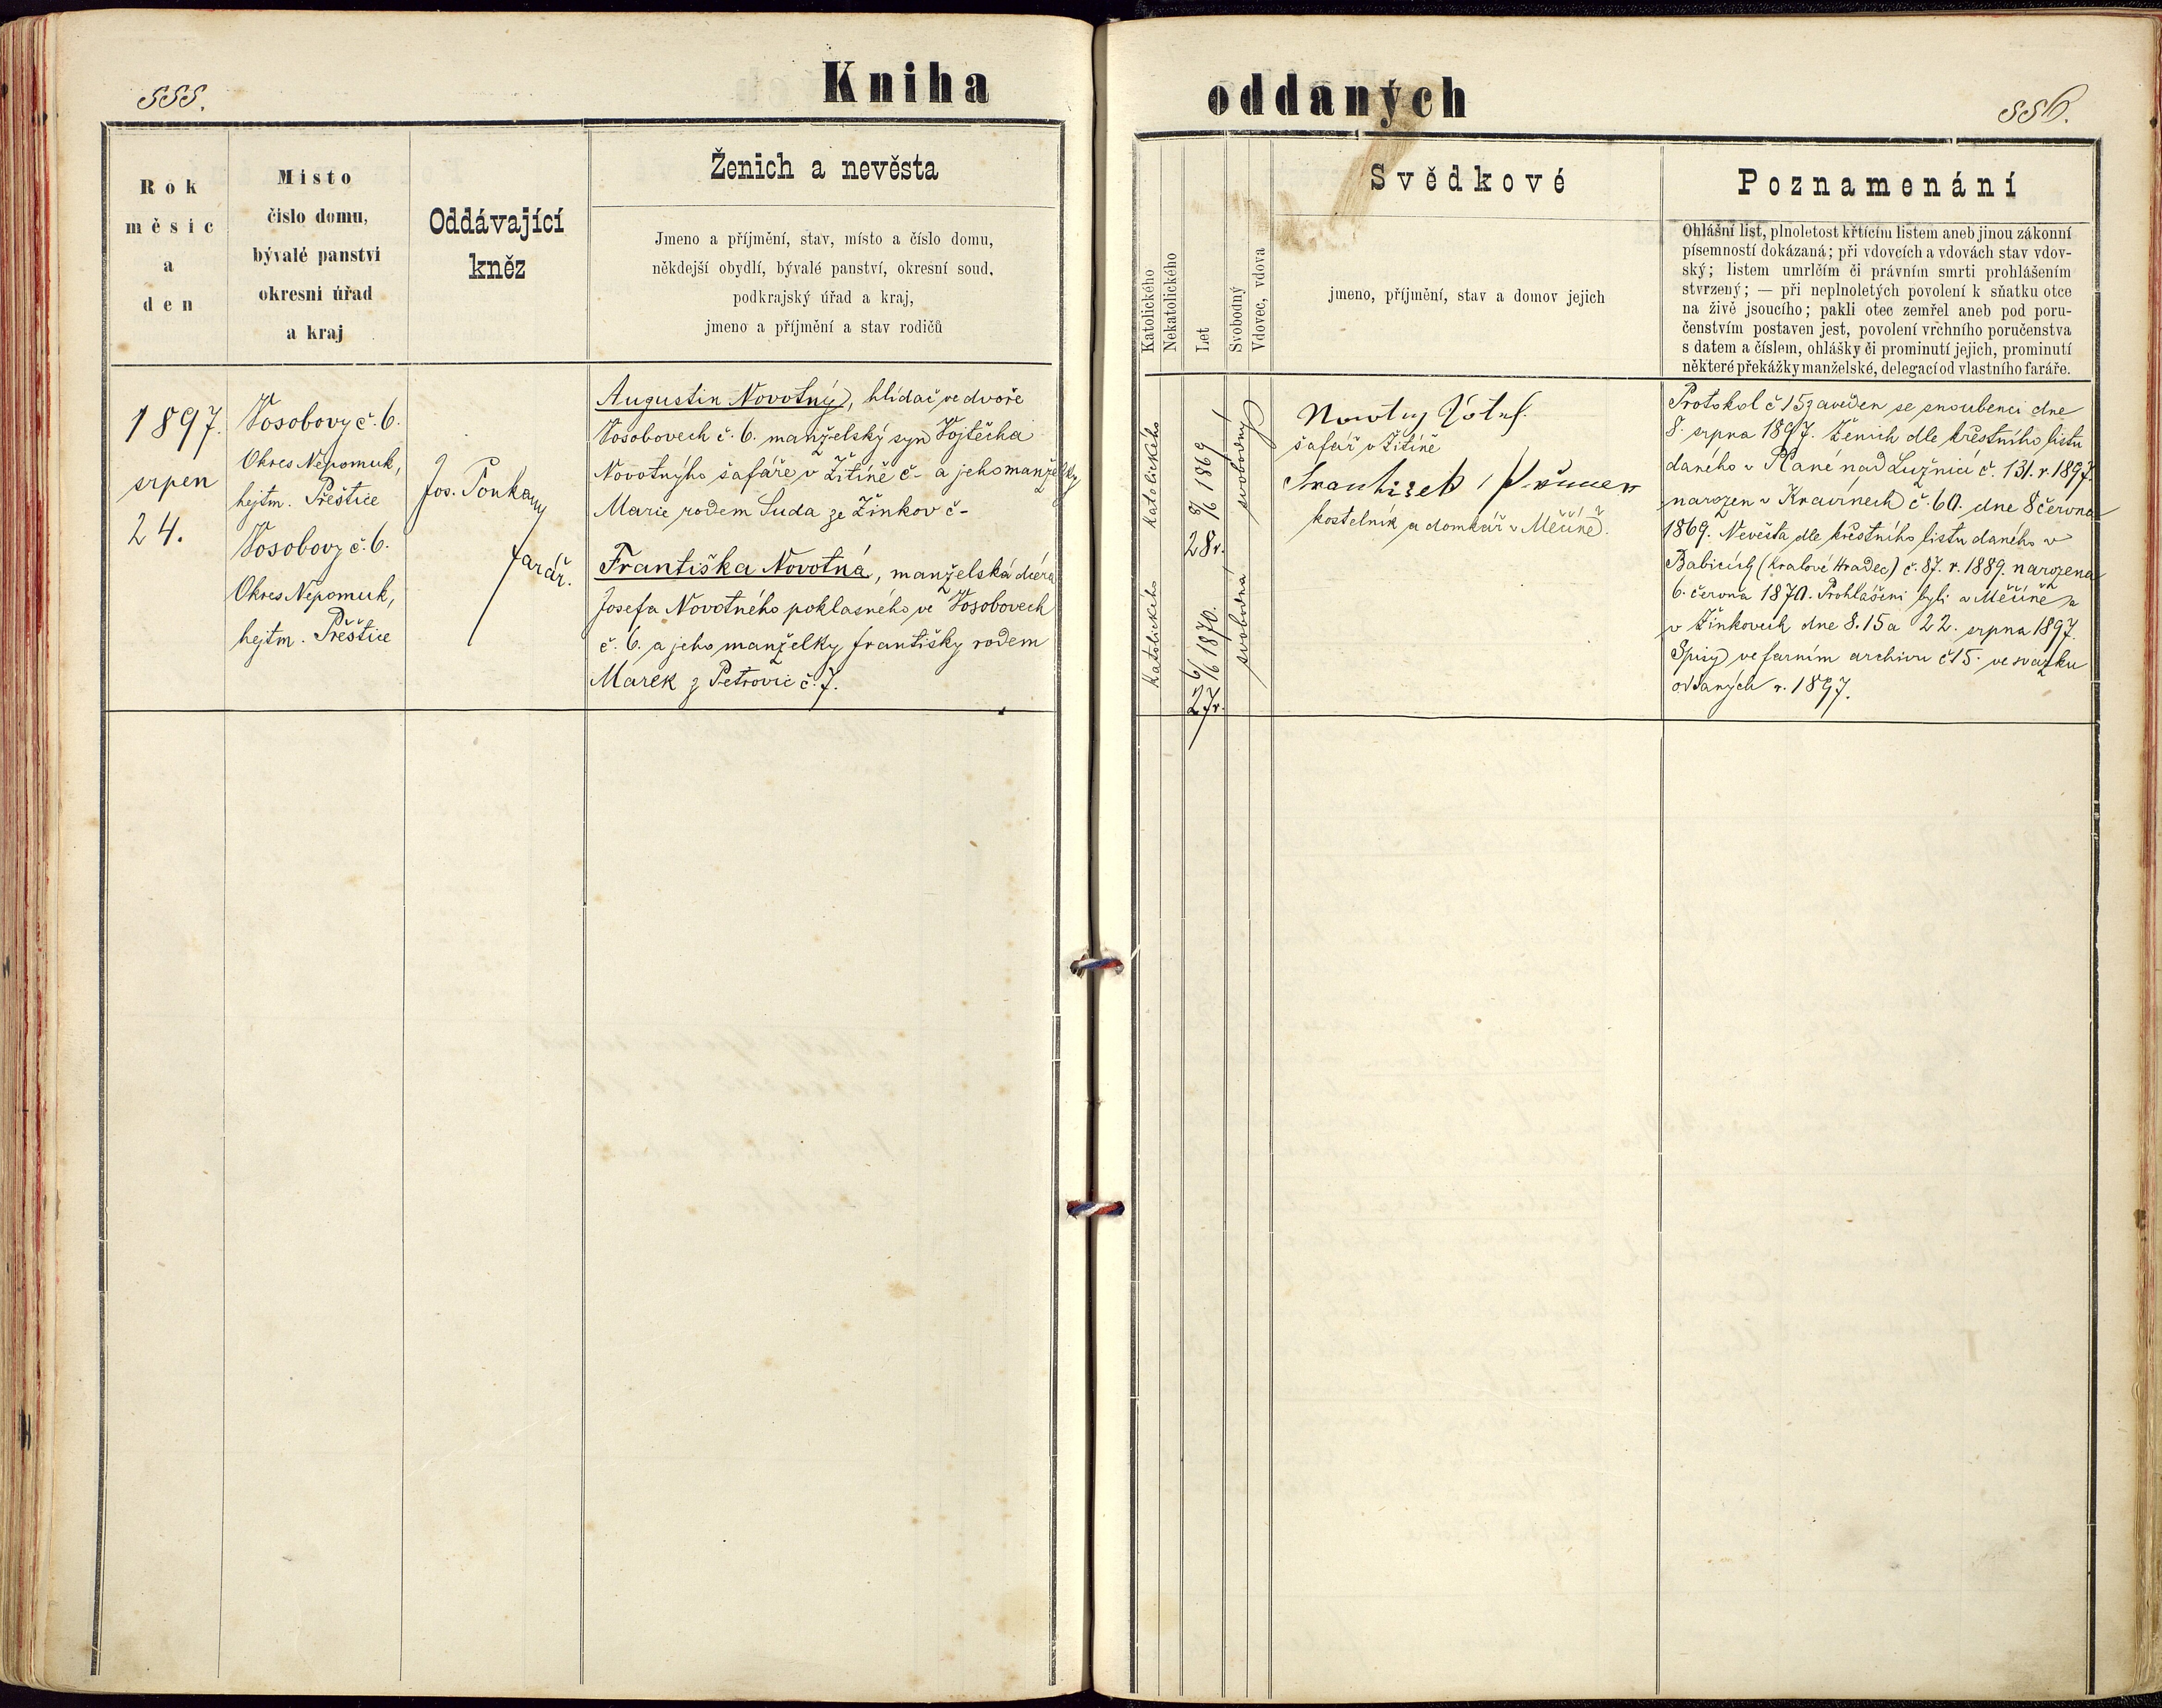 555.
Kniha
oddaných
556.
Rok
měsíc
a
den
Místo
číslo domu,
bývalé panství
okresní úřad
a kraj
Oddávající
kněz
Ženich a nevěsta
Jmeno a příjmění, stav, místo a číslo domu,
někdejší obydlí, bývalé panství, okresní soud,
podkrajský úřad a kraj,
jmeno a příjmění a stav rodičů
Katolického
Nekatolického
Let
Svobodný
Vdovec, vdova
Svědkové
jmeno, příjmění, stav a domov jejich
Poznamenání
Ohlašní list, plnoletost křtícím listem aneb jinou zákonní
písemností dokázaná; při vdovcích a vdovách stav vdov-
ský; listem umrlčím či právním smrti prohlášením
stvrzený; — při neplnoletých povolení k sňatku otce
na živě jsoucího; pakli otec zemřel aneb pod poru-
čenstvím postaven jest, povolení vrchního poručenstva
s datem a číslem, ohlášky či prominutí jejich, prominutí
některé překážky manželské, delegací od vlastního faráře.
1897.
srpen
24.
Vosobovy č. 6.
Okres Nepomuk,
hejtm. Přeštice
Vosobovy č. 6.
Okres Nepomuk,
hejtm. Přeštice
Jos. Poukany
farář.
Augustin Novotný, hlídač ve dvoře
Vosobovech č. 6. manželský syn Vojtěcha
Novotnýho šafáře v Žitíně č- a jeho manželky
Marie rodem Suda ze Žinkov č-
Františka Novotná, manželská dcera
Josefa Novotného poklasného ve Vosobovech
č. 6. a jeho manželky Františky rodem
Marek z Petrovic č. 7.
katolického
katolického
8/6 1869
28 r.
6/6 1870.
27 r.
svobodný
svobodná
Novotny Jósef
šafář v Žitíně
František
kostelník a domkář v Měčíně.
Protokol č 15 zaveden se snoubenci dne
8. srpna 1897. Ženich dle křestního listu
daného v Plané nad Lužnicí č. 131. r. 1897.
narozen v Kravínech č. 60. dne 8 června
1869. Nevěsta dle křestního listu daného v
Babicích (Kralové Hradec) č. 87. r. 1889. narozena
6. června 1870. Prohlášeni byli v Měčíně a
v Žinkovech dne 8. 15 a 22. srpna 1897.
Spisy ve farním archivu č 15. ve svazku
oddaných r. 1897.